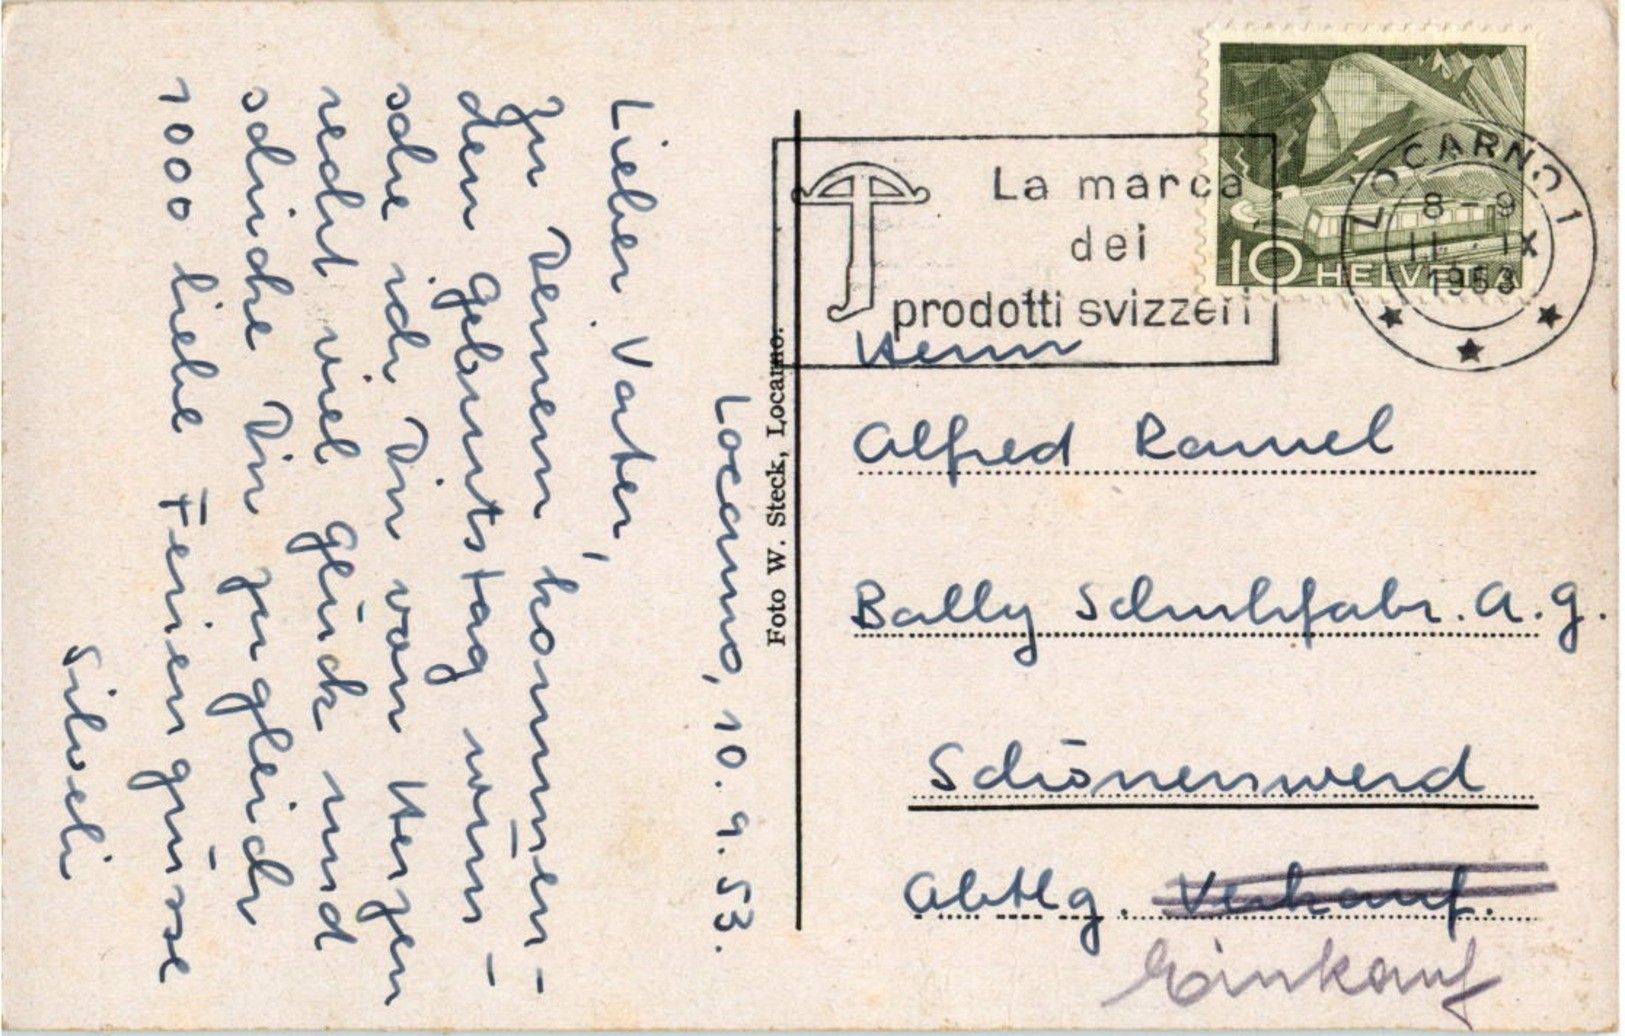 Locarno, 10. 9. 53.
Lieber Vater,
Zu Deinem kommen-
den Geburtstag wün-
sche ich Dir von Herzen
recht viel Glück und
schicke Dir zugleich
1000 liebe Feriengrüsse
Silveli
Foto W. Steck, Locarno.
La marca
dei
prodotti svizzeri
10 HELVETIA
LOCARNO 1
8-9
11. IX
1953
Herrn
Alfred Ramel
Bally Schuhfabr. A.G.
Schönenwerd
Abtlg. Verkauf.
Einkauf